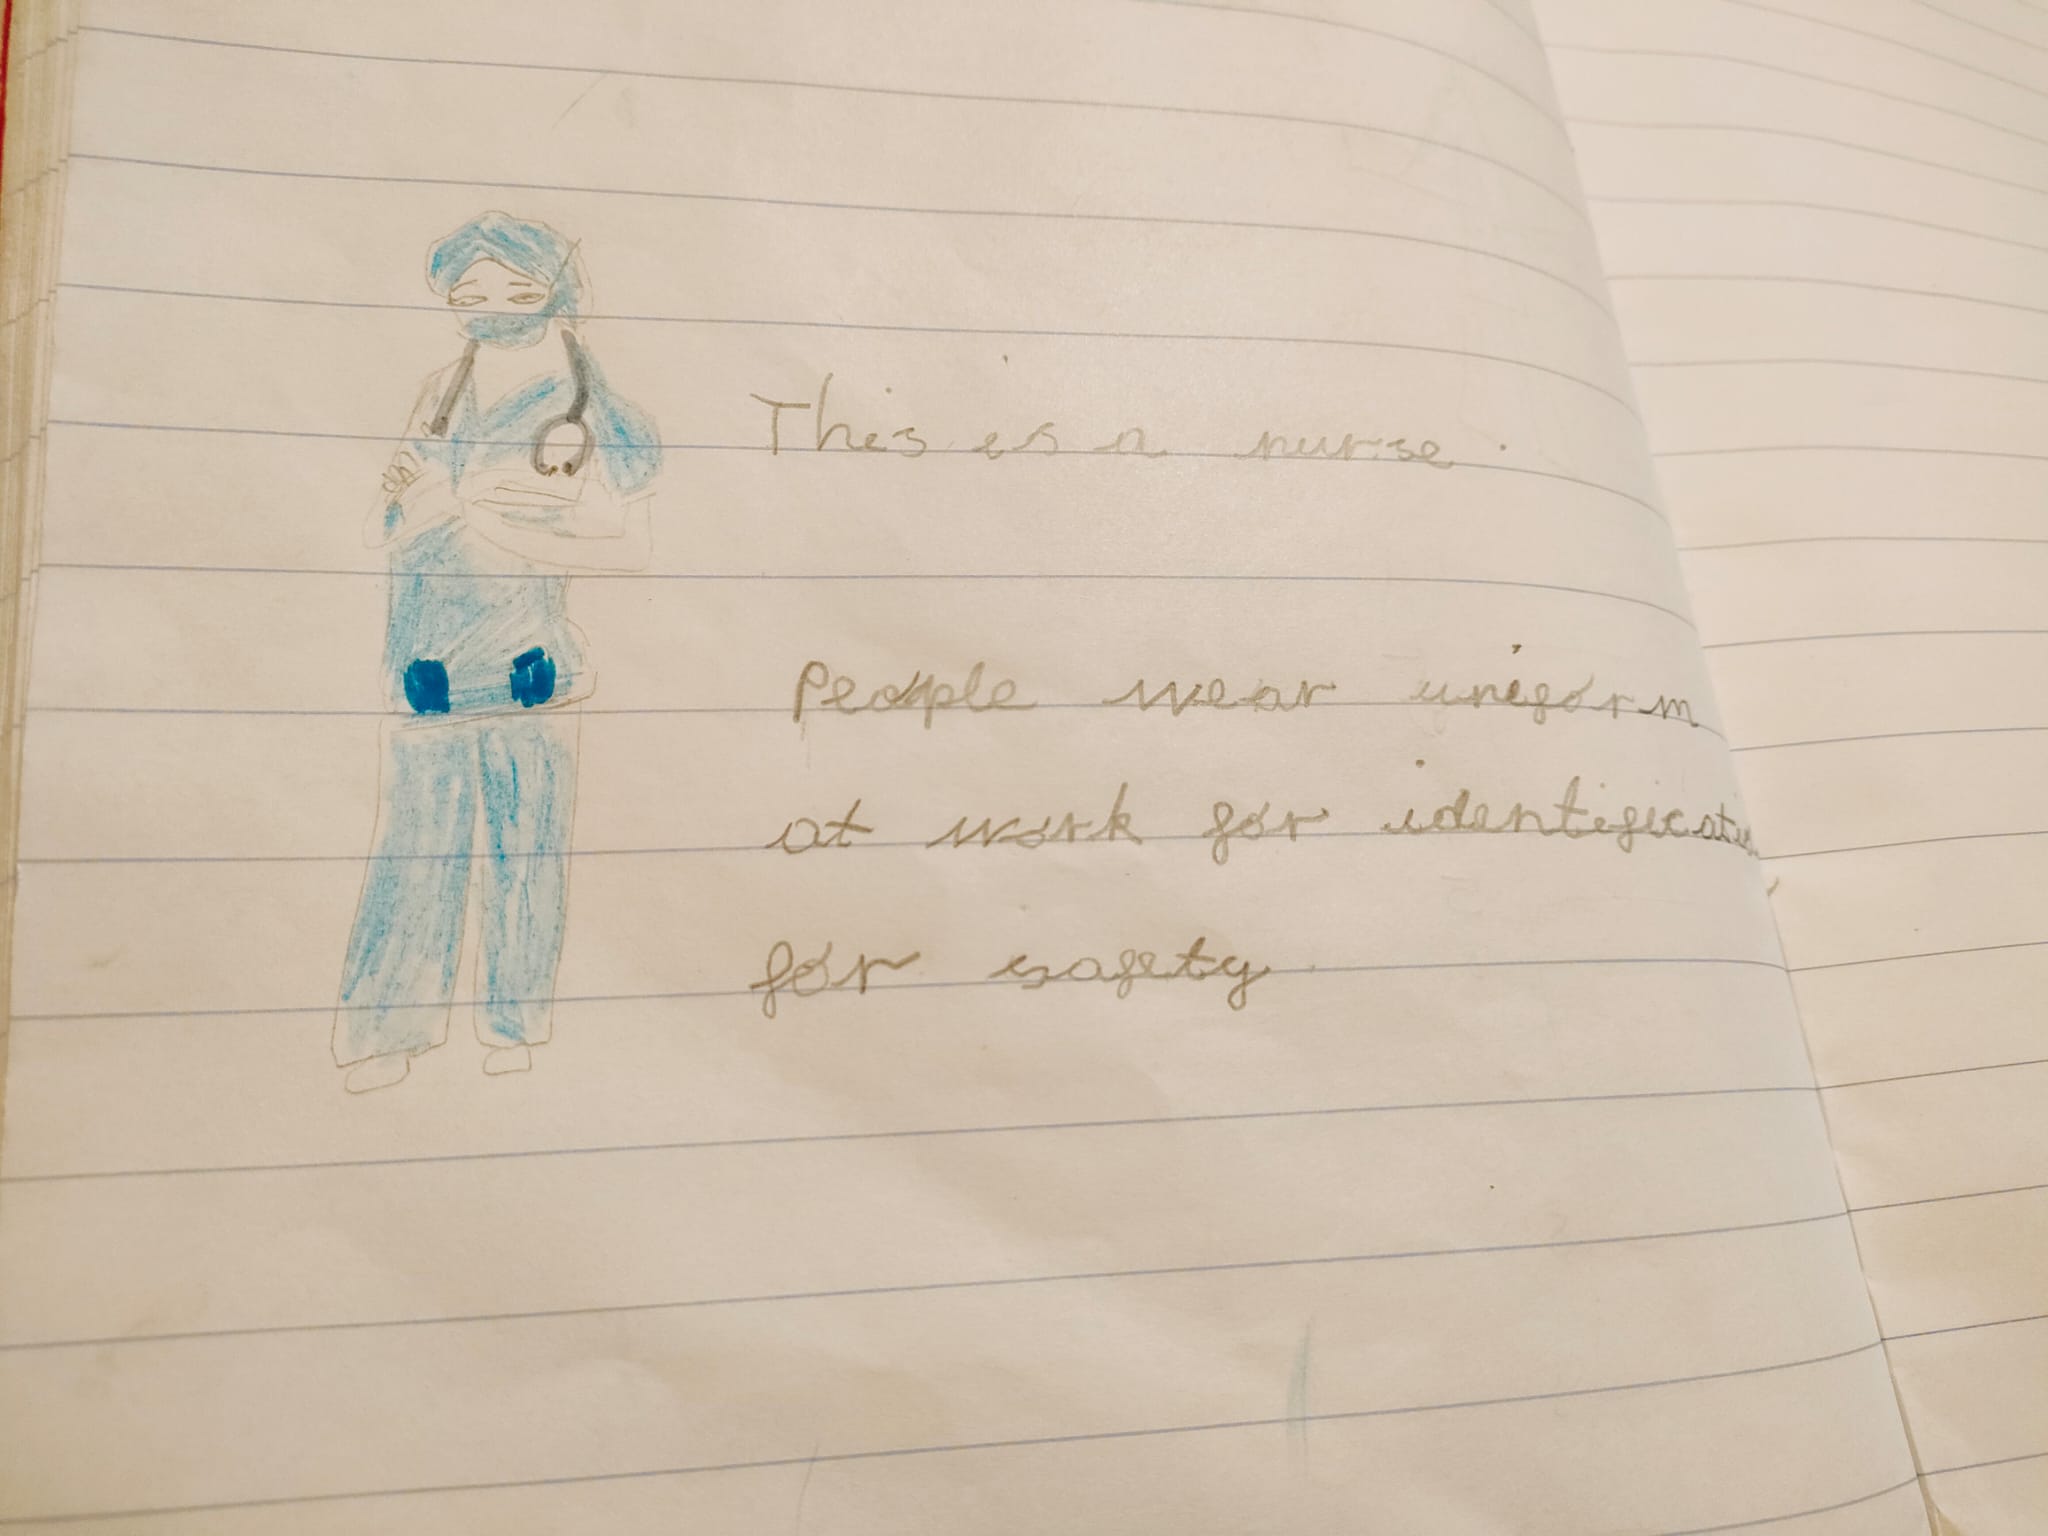 This is a nurse.
People wear uniform
at work for identification
for safety